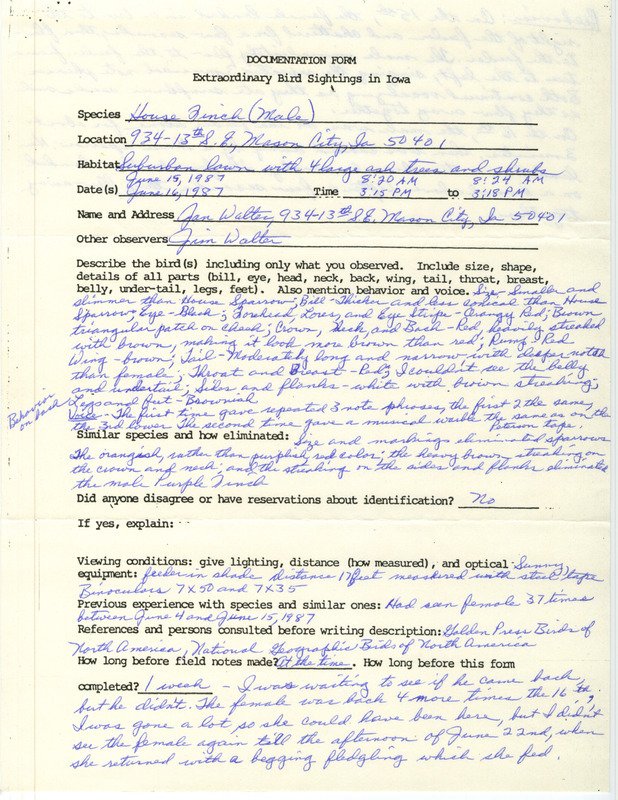 DOCUMENTATION FORM
Extraordinary Bird Sightings in Iowa
Species House Finch (Male)
Location 934-13th S.E, Mason City, Ia 50401
Habitat Suburban lawn with 4 large ash trees and shrubs
June 15, 1987 8:20 AM 8:24 AM
Date(s) June 16, 1987 Time 3:15 PM to 3:18 PM
Name and Address Jan Walter, 934-13th S.E. Mason City, Ia 50401
Other observers Jim Walter
Describe the bird(s) including only what you observed. Include size, shape,
details of all parts (bill, eye, head, neck, back, wing, tail, throat, breast,
belly, under-tail, legs, feet). Also mention behavior and voice. Size-Smaller and
slimmer than House Sparrow; Bill-Thicker and less conical than House
Sparrow; Eye-Black; Forehead, Lores, and Eye Stripe-Orangy Red; Brown
triangular patch on cheek; Crown, Neck, and Back-Red, heavily streaked
with brown, making it look more brown than red; Rump-Red
Wing-brown; Tail-Moderately long and narrow with deeper notch
than female; Throat and Breast-Red; I couldn't see the belly
and undertail; Sides and flanks-white with brown streaking;
Legs and feet-Brownish
Behavior on back
Voice-The first time gave repeated 3 note phrases, the first 2 the same,
the 3rd lower. The second time gave a musical warble the same as on the
Peterson tape.
Similar species and how eliminated: Size and markings eliminated sparrows
The orangish, rather than purplish, red color; the heavy brown streaking on
the crown and neck; and the streaking on the sides and flanks eliminated
the male Purple Finch
Did anyone disagree or have reservations about identification? No
If yes, explain:
Viewing conditions: give lighting, distance (how measured), and optical Sunny,
equipment: feeder in shade Distance 17 feet measured with steel tape
Binoculars 7X50 and 7X35
Previous experience with species and similar ones: Had seen female 37 times
between June 4 and June 15, 1987
References and persons consulted before writing description: Golden Press Birds of
North America, National Geographic Birds of North America
How long before field notes made? At the time. How long before this form
completed? 1 week - I was waiting to see if he came back,
but he didn't. The female was back 4 more times the 16th;
I was gone a lot so she could have been here, but I didn't
see the female again till the afternoon of June 22nd, when
she returned with a begging fledgling which she fed.